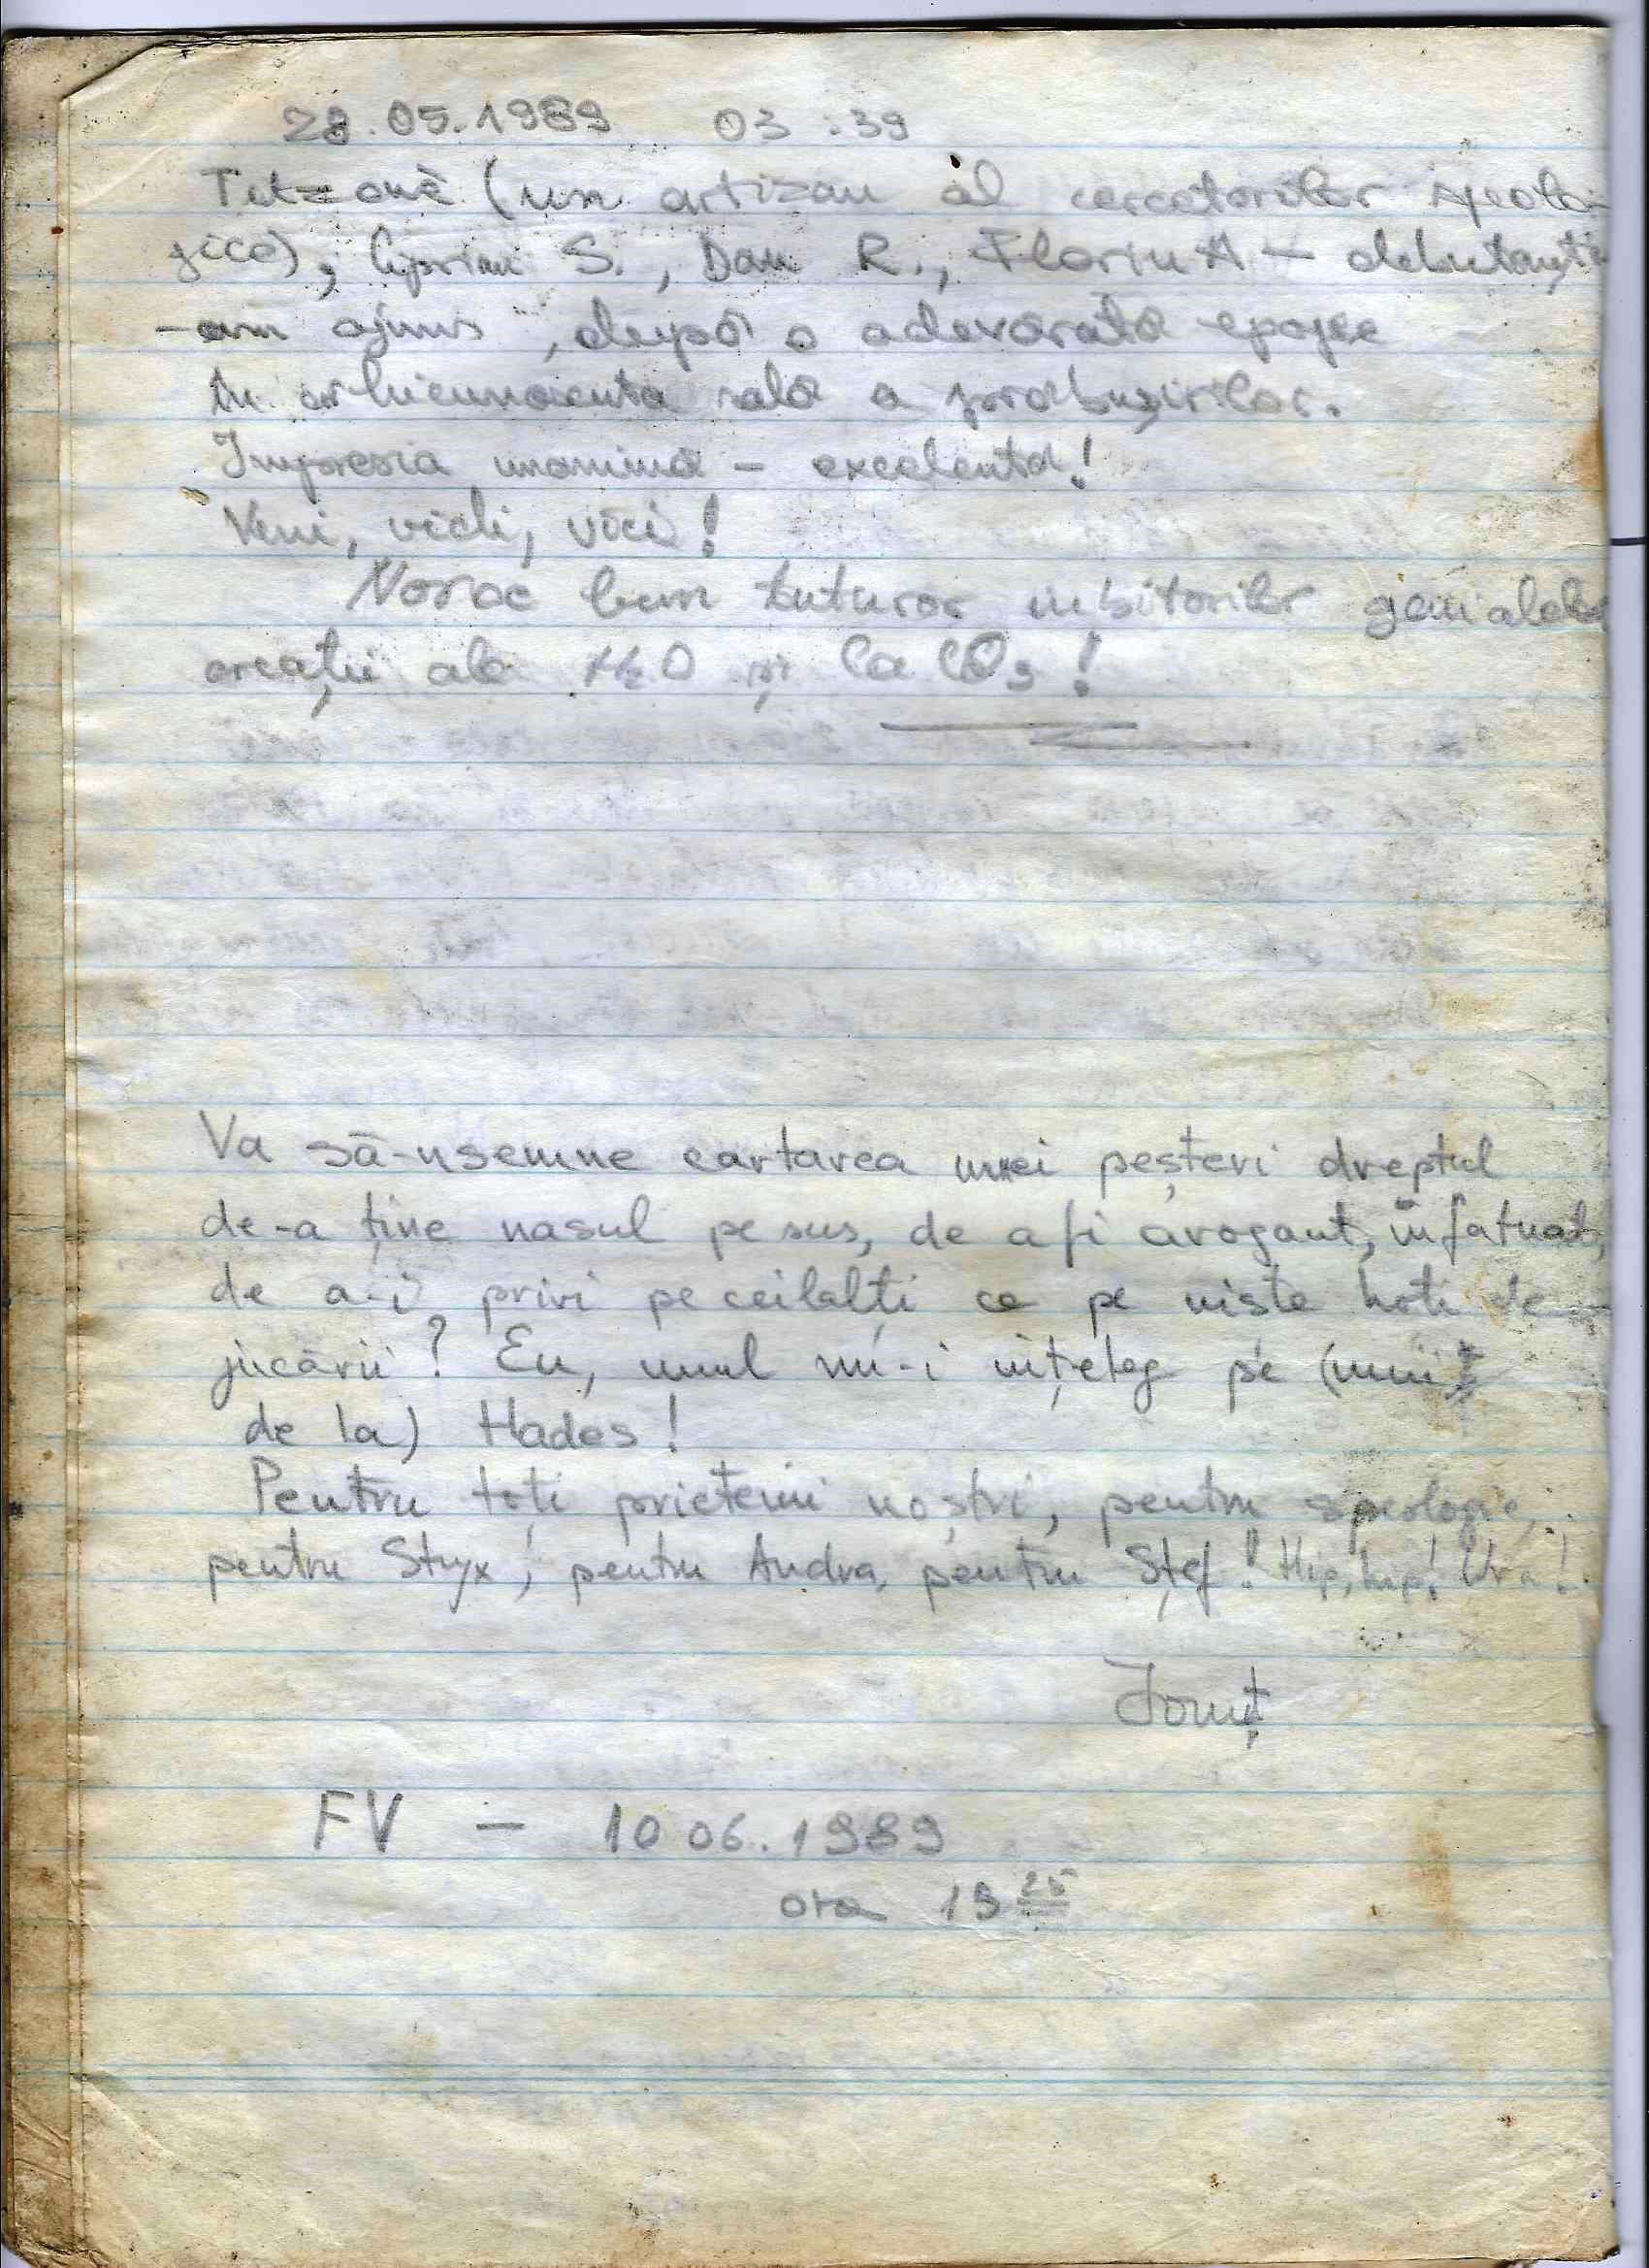 28.05.1989 03:39
Titzonè (un artizan al cercetorilor speolo-
gice), Ciprian S., Dan R., Florin A - debutanți
- am ajuns, după o adevărată epopee
în arhicunoscuta sală a prăbușirilor.
Impresia unanimă - excelentă!
Veni, vidi, vici!
Noroc bun tuturor iubitorilor genialelor
creații ale H2O și CaCO3!
Va să-nsemne cartarea unei peșteri dreptul
de-a ține nasul pe sus, de a fi arogant, înfatuat,
de a-i privi pe ceilalți ca pe niste hoti de
jucării? Eu, unul nu-i nițeleg pe (unii
de la) Hades!
Pentru toți prietenii noștri, pentru speologie,
pentru Styx, pentru Andra, pentru Ștef! Hip, hip! Ura!
Ionuț
FV - 10 06.1989
ora 19 25